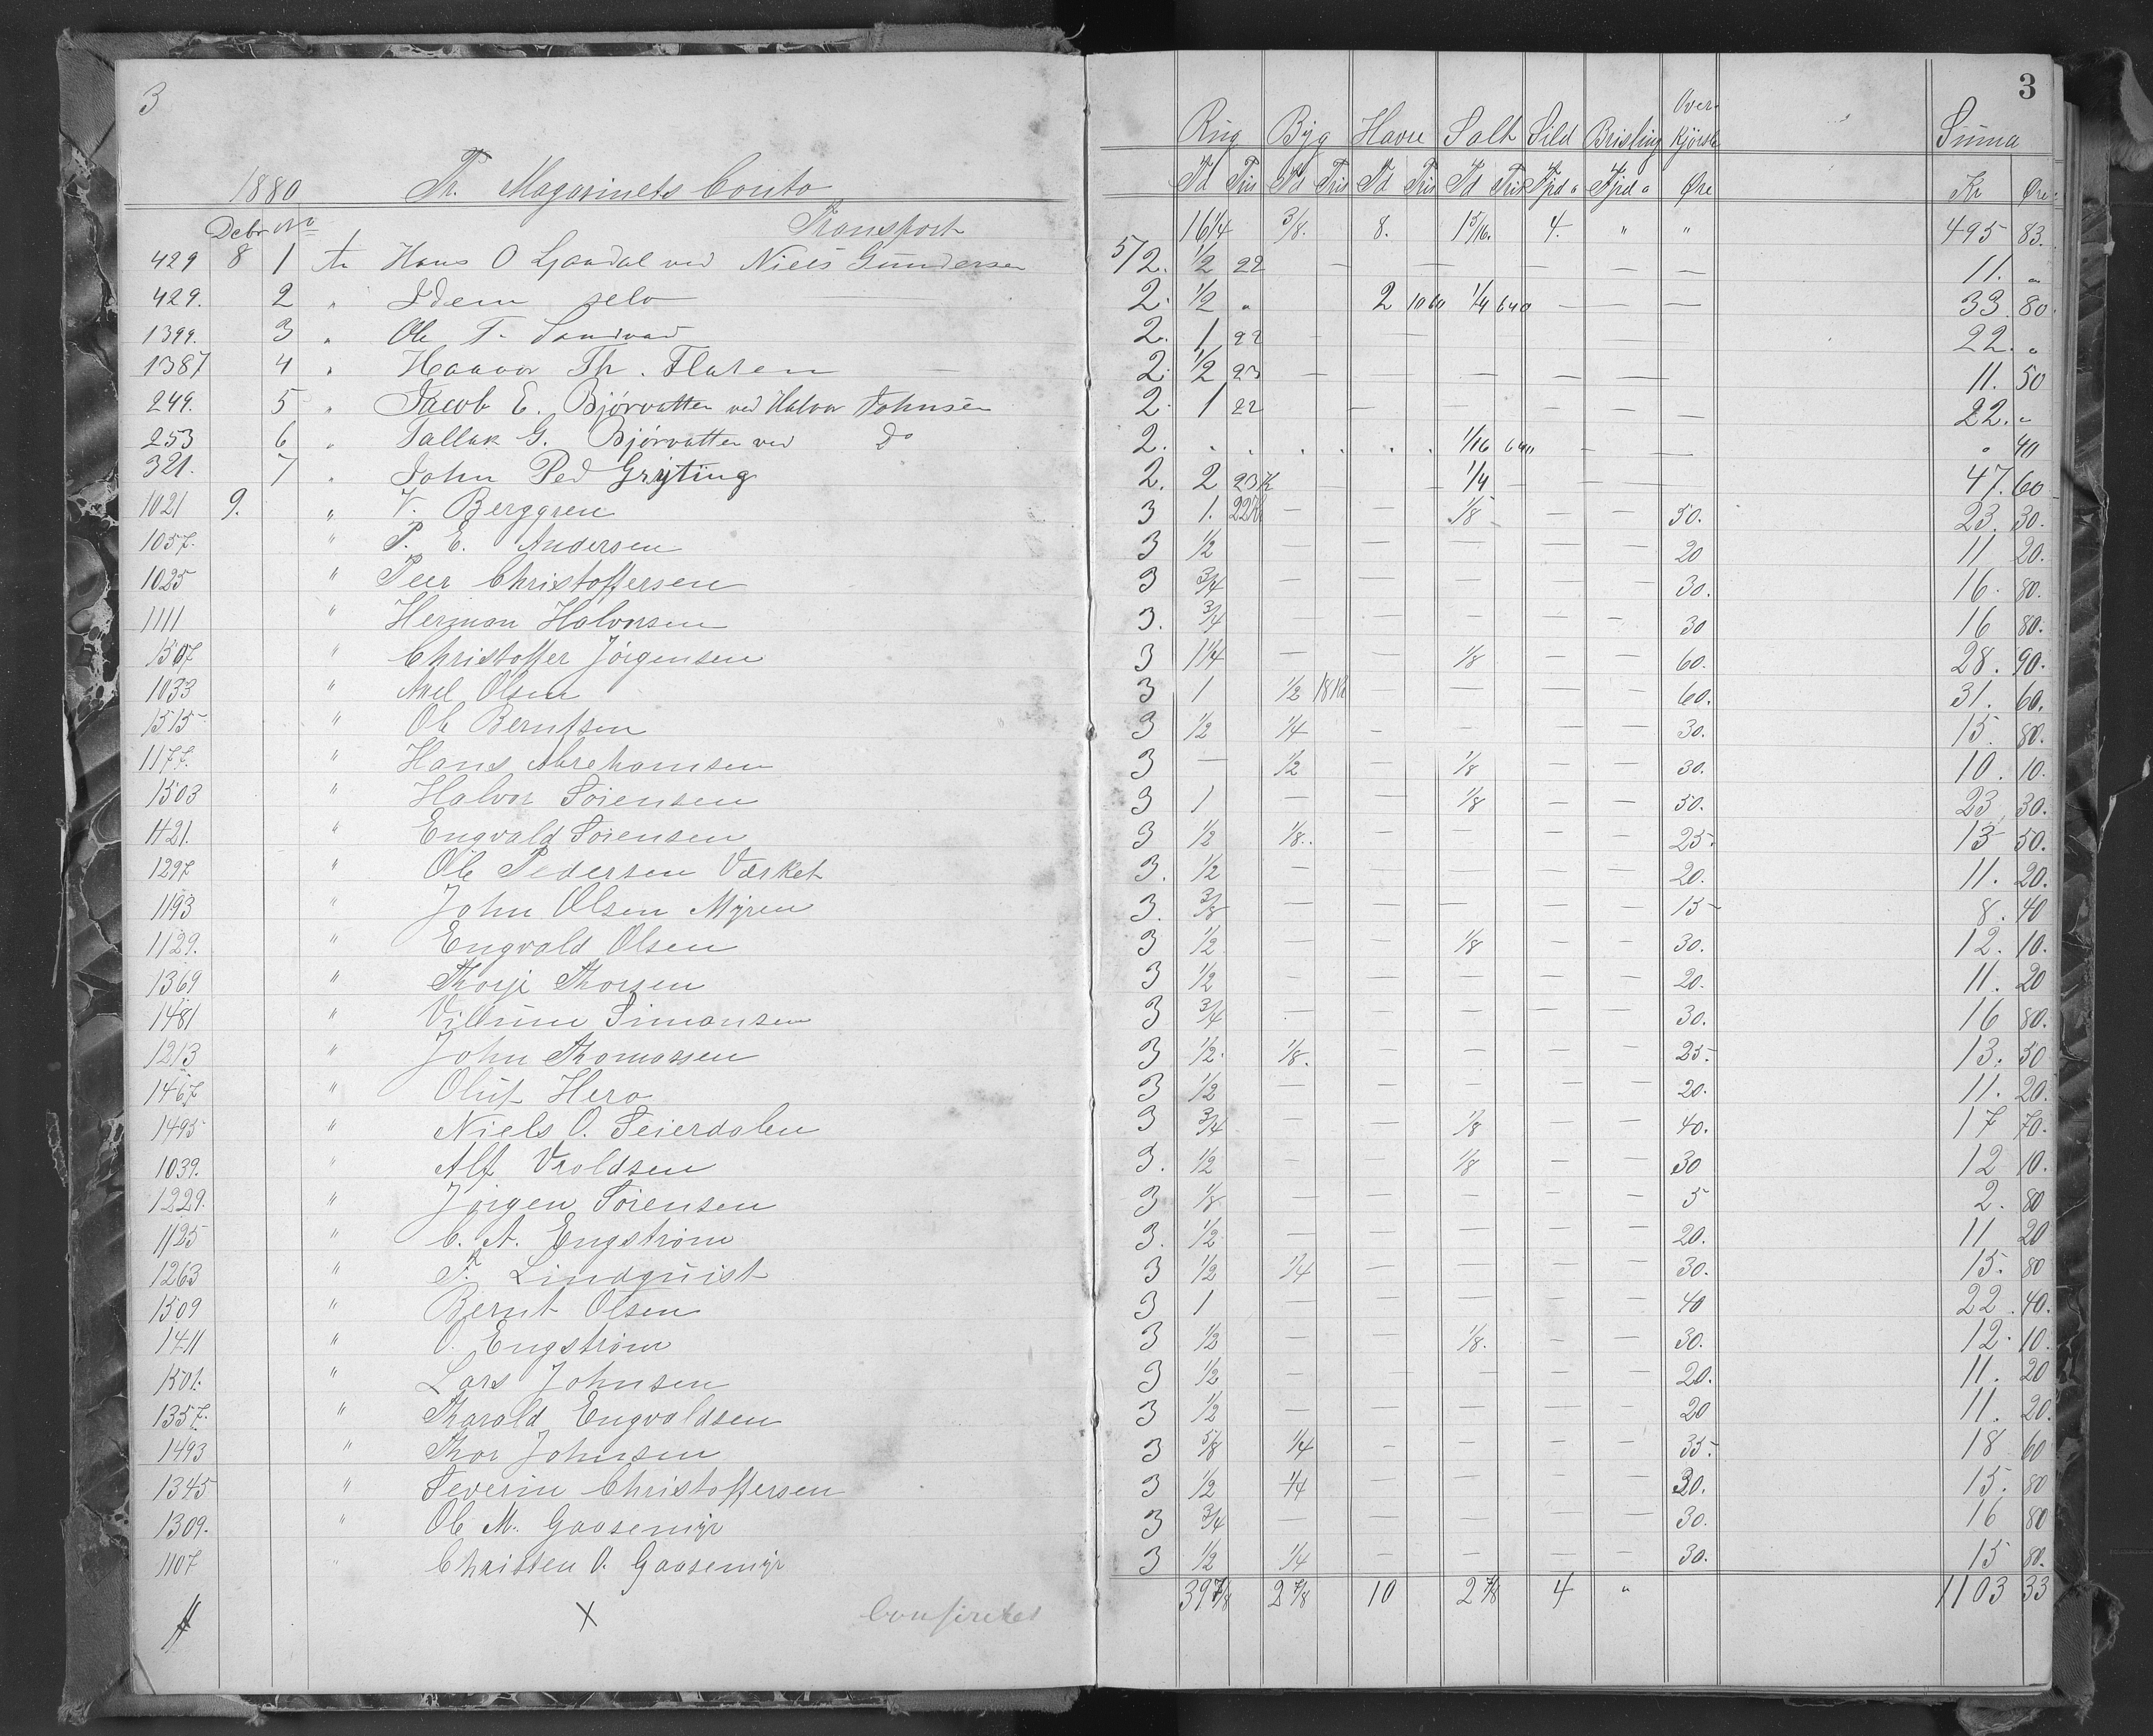 3 3
Over-
Rug Byg Havre Salt Sild Brisling Kjørsel Suma
1880 Th. Magasinets Conto Td Pris Td Pris Td Pris Td Pris Fjd a Fjd a Øre Kr Øre
Debr No Transport 16 1/4 3/8. 8. 1 5/16. 4. " " 495 83.
429 8 1 An Hans O Ljaadal ved Niels Gundersen 5/2. 1/2 22 — — — — — — 11. "
429. 2 " Idem selv 2. 1/2 " 2 10 60 1/4 640 — — — 33. 80.
1399. 3 " Ole T. Sandvad 2. 1 22 — — — — — 22. "
1387 4 " Haavor Th. Flaten 2. 1/2 23 — — — — — 11. 50
249. 5 " Jacob E. Bjørvatten ved Halvor Johnsen 2. 1 22 — — — — — 22. "
253 6 " Tallak G. Bjørvatten ved Do 2. . . . . . . 1/16 640 — — " 40
321. 7 " John Ped Gryting 2. 2 23 K — — 1/4 — — — 47. 60
1021 9. " V. Berggren 3 1. 22 K — — 1/8 — — — 50. 23. 30.
1057. " P. E. Andersen 3 1/2 — — — — — 20 11 20.
1025 " Peer Christoffersen 3 3/4 — — — — — 30. 16. 80.
1111 " Herman Halvorsen 3. 3/4 — — — — — 30 16 80.
1507 " Christoffer Jörgensen 3 1 1/4 — — 1/8 — — 60. 28. 90.
1033 " Axel Olsen 3 1 1/2 18 Kr — — — — 60. 31. 60.
1515 " Ole Berntsen 3 1/2 1/4 — — — — 30. 15. 80.
1177. " Hans Abrehamsen 3 — 1/2 — 1/8 — — 30. 10. 10.
1503 " Halvor Sörensen 3 1 — — 1/8 — — 50. 23, 30.
1121. " Engvald Sörensen 3 1/2 1/8.. — — — — 25. 13 50.
1297 " Ole Pedersen Værket 3. 1/2 — — — — — 20. 11. 20.
1193 " John Olsen Myren 3. 3/8 — — — — — 15 8. 40
1129. " Engvald Olsen 3 1/2 — — 1/8 — — 30. 12. 10.
1369 " Thorje Thorsen 3 1/2 — — — — — 20. 11. 20
1481 " Villum Simonsen 3 3/4 — — — — — 30. 16 80.
1213 " John Thomassen 3 1/2. 1/8. — — — — 25. 13. 50
1467 " Oluf Hero 3 1/2 — — — — — 20. 11. 20.
1495 " Niels O. Seierdalen 3 3/4 — — 1/8 — — 40. 17 70.
1039. " Alf Vroldsen 3. 1/2 — — 1/8 — — 30 12 10.
1229. " Jörgen Sörensen 3 1/8 — — — — — 5 2. 80
1125 " C. A. Engström 3. 1/2 — — — — — 20. 11 20
1263 " F. Lindquist 3 1/2 1/4 — — — — 30. 15. 80
1509 " Bernt Olsen 3 1 — — — — — 40 22. 40.
1411 " O. Engström 3 1/2 — — 1/8. — — 30. 12. 10.
1501. " Lars Johnsen 3 1/2 — — — — — 20. 11. 20
1357. " Tharald Engvoldsen 3 1/2 — — — — — 20 11. 20.
1493 " Thor Johnsen 3 5/8 1/4 — — — — 35. 18 60
1345 " Severin Christoffersen 3 1/2 1/4 — — — — 30. 15. 80
1309. " Ole M. Gaasemyr 3 3/4 — — — — — 30. 16 80
1107 " Christen O. Gaasemyr 3 1/2 1/4 — — — — 30. 15 80.
39 7/8 2 7/8 10 2 7/8 4 " 1103 33
X